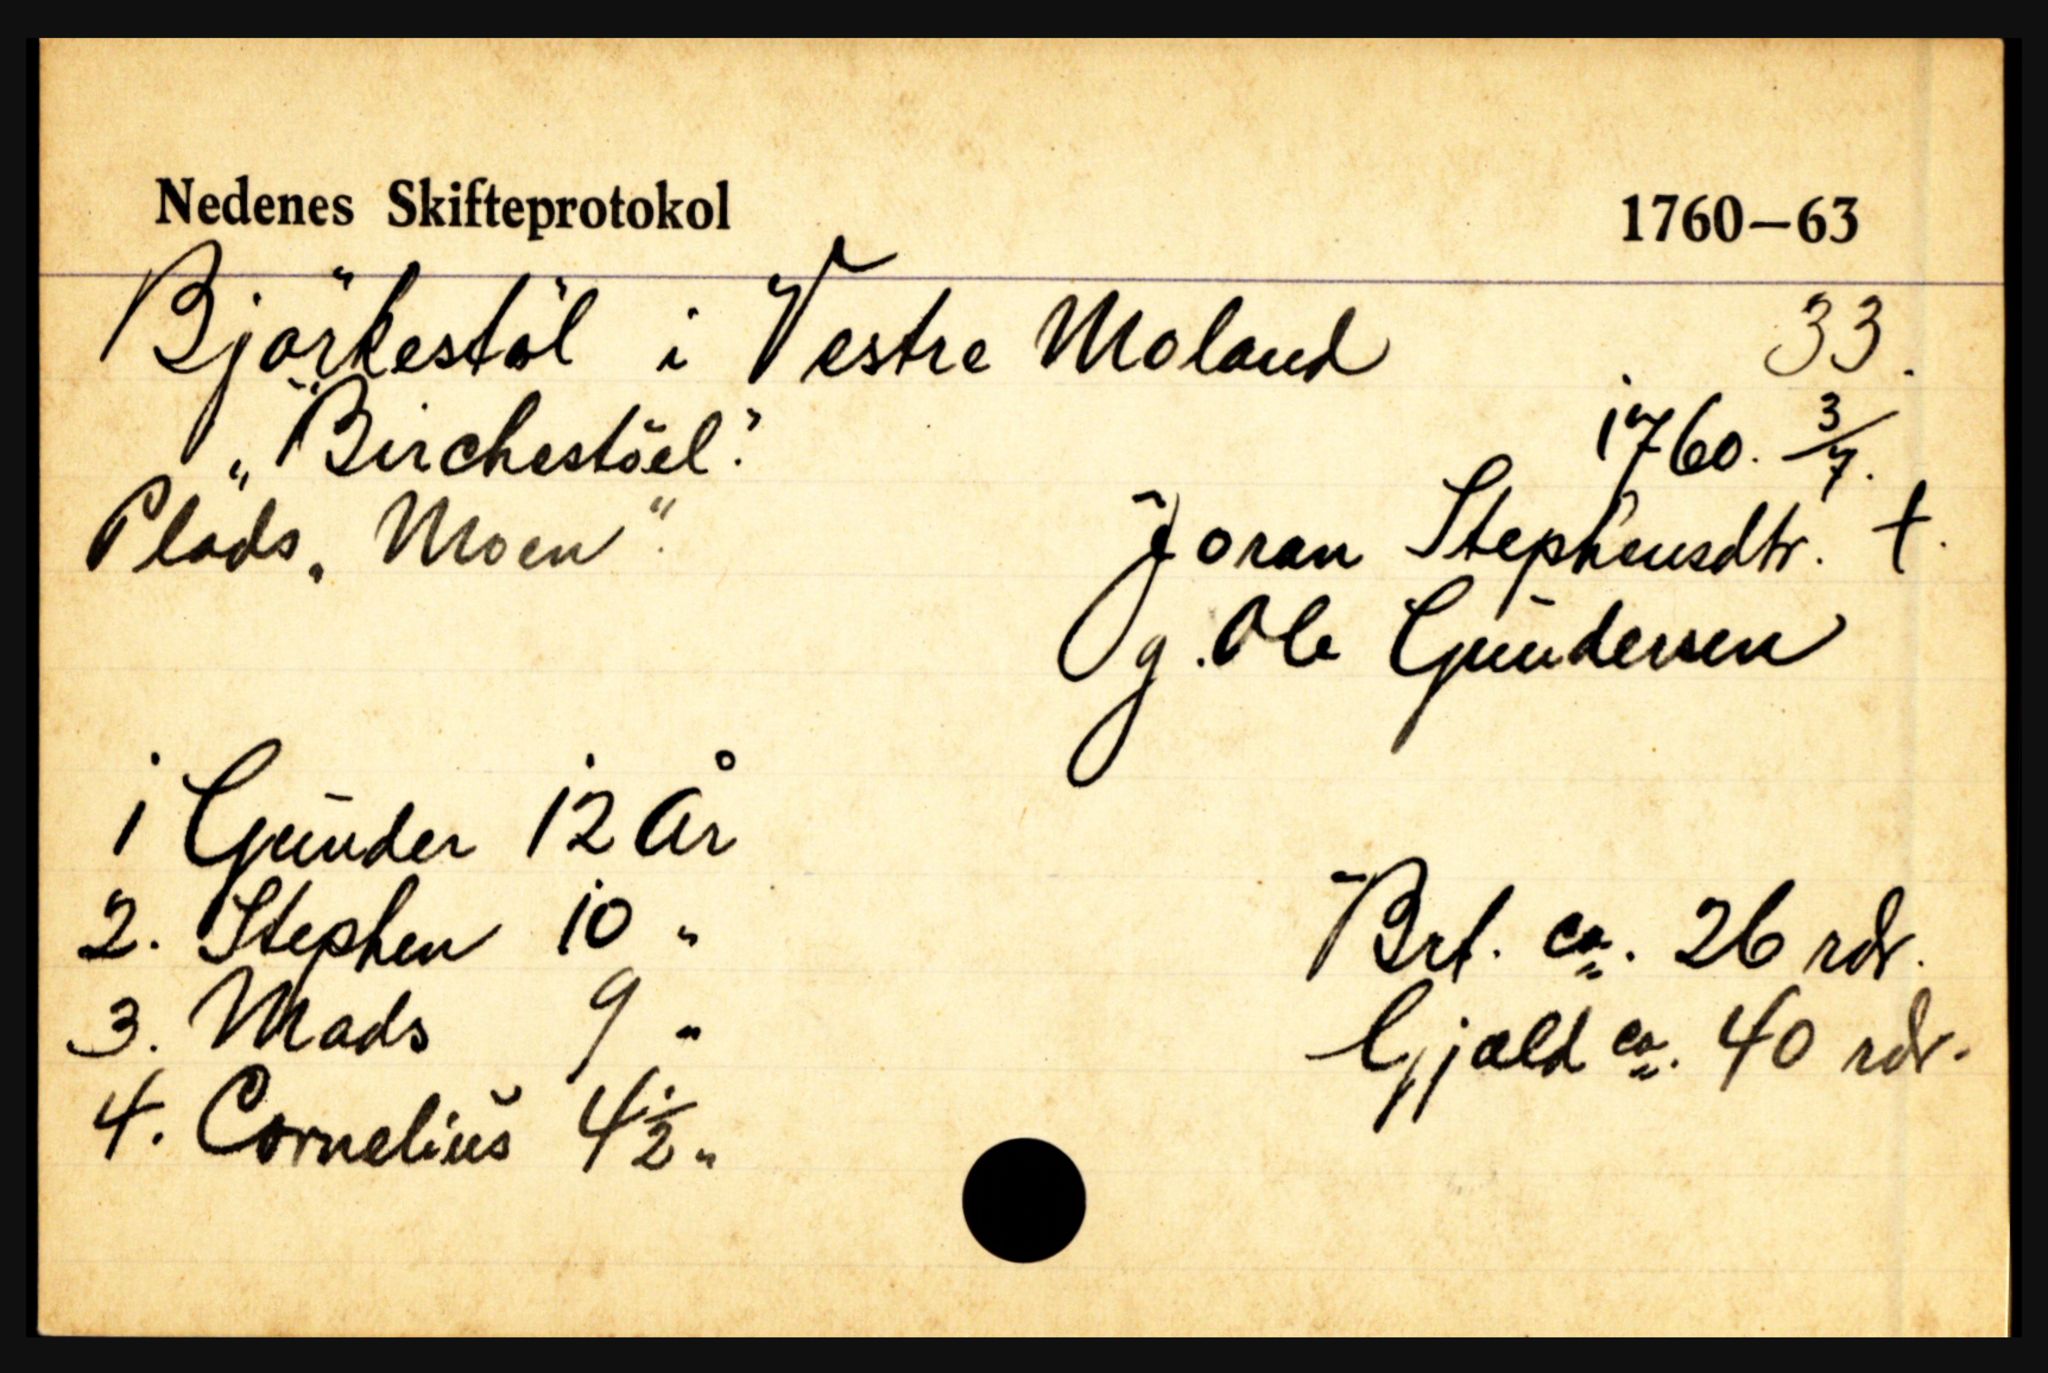 Nedenes Skifteprotokol 1760—63
Björkestöl i Vestre Moland 33.
„Birchestöel". 1760. 3/7.
Plads „Moen". Joran Stephensdtr. †.
g. Ole Gundersen
1 Gunder 12 År
2. Stephen 10 "
3. Mads 9 "
4. Cornelius 4 1/2 "
Brt. ca. 26 rdr.
Gjæld ca. 40 rdr.